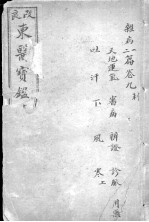 改良
東醫寶鑑
雜病二篇卷九
天地運氣 審病 辨證 診脉 用藥
吐 汗 下 風 寒上